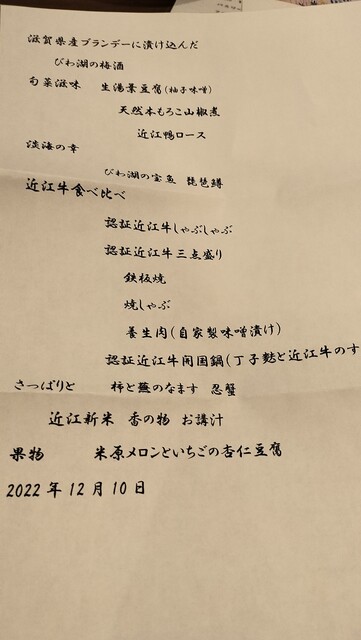 滋賀県産ブランデーに漬け込んだ
びわ湖の梅酒
旬菜滋味 生湯葉豆腐(柚子味噌)
天然本もろこ山椒煮
近江鴨ロース
淡海の幸
びわ湖の宝魚 琵琶鱒
近江牛食べ比べ
認証近江牛しゃぶしゃぶ
認証近江牛三点盛り
鉄板焼
焼しゃぶ
養生肉(自家製味噌漬け)
認証近江牛開国鍋(丁子麩と近江牛のす
さっぱりと 柿と蕪のなます 忍蟹
近江新米 香の物 お講汁
果物 米原メロンといちごの杏仁豆腐
2022年12月10日